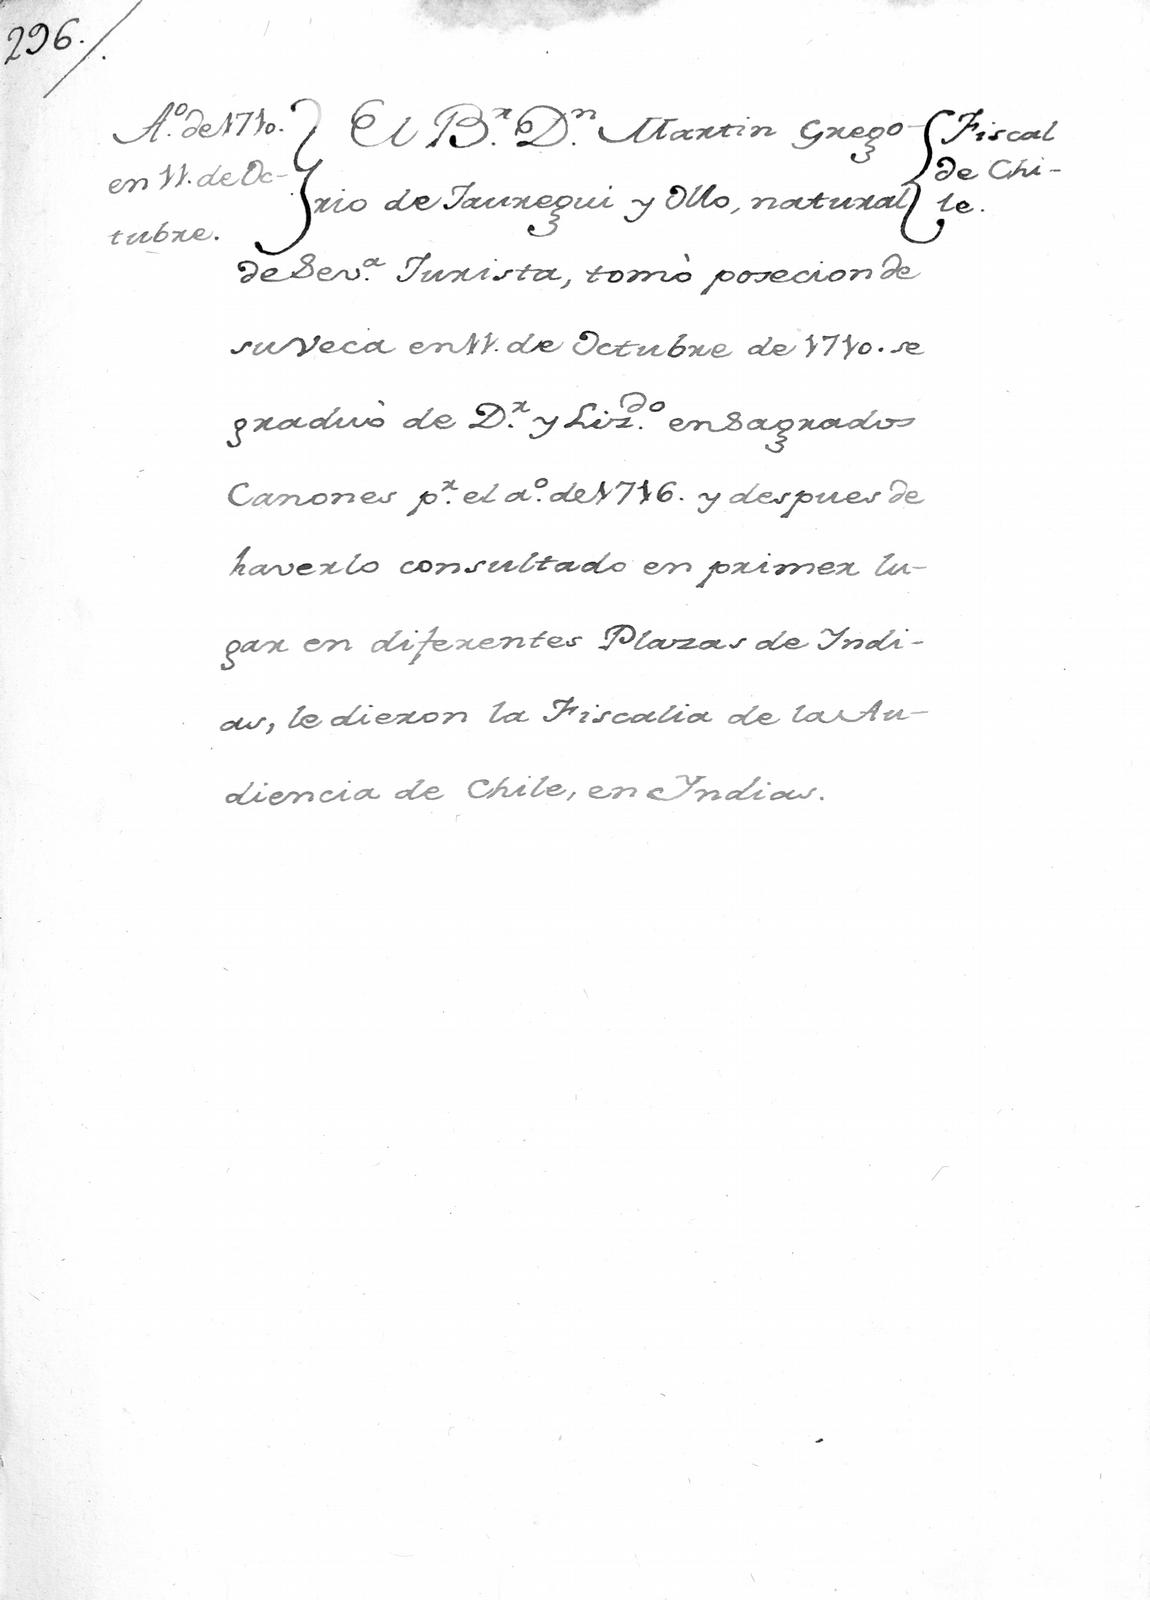 296.
A.º de 1710.
en 11. de Oc-
tubre.
El B.r D.n Martin Grego-
rio de Jauregui y Ollo, natural
de Sev.a Jurista, tomò posecion de
su Veca en 11. de Octubre de 1710. se
graduò de D.r y Liz.do en Sagrados
Canones p.r el a.º de 1716. y despues de
haverlo consultado en primer lu-
gar en diferentes Plazas de Indi-
as, le dieron la Fiscalia de la Au-
diencia de Chile, en Indias.
Fiscal
de Chi-
le.